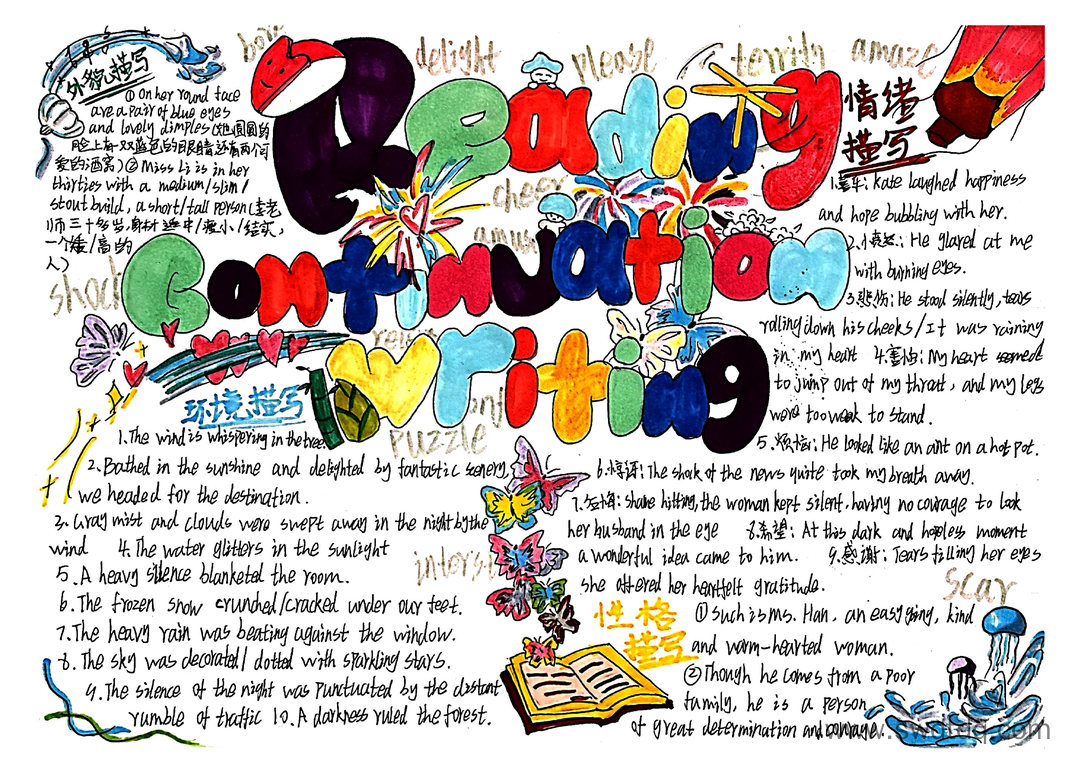 Reading
Continuation
writing
delight
please
terrify
amaze
cheer
amus
puzzle
interst
scar
外貌描写
① On her round face
are a pair of blue eyes
and lovely dimples (她圆圆的
脸上有一双蓝色的眼睛还有两个可
爱的酒窝) ② Miss Li is in her
thirties with a medium/slim/
stout build, a short/tall person (李老
师三十多岁,身材适中/瘦小/结实,
一个矮/高的
人)
环境描写
1. The wind is whispering in the tree
2. Bathed in the sunshine and delighted by fantastic scenery,
we headed for the destination.
3. Gray mist and clouds were swept away in the night by the
wind 4. The water glitters in the sunlight
5. A heavy silence blanketed the room.
6. The frozen snow crunched/cracked under our feet.
7. The heavy rain was beating against the window.
8. The sky was decorated/ dotted with sparkling stars.
9. The silence of the night was punctuated by the distant
rumble of traffic 10. A darkness ruled the forest.
情绪
描写
1. Kate laughed happiness
and hope bubbling with her.
2. He glared at me
with burning eyes.
3. 悲伤: He stood silently, tears
rolling down his cheeks/It was raining
in my heart 4. 害怕: My heart seemed
to jump out of my throat, and my legs
were too weak to stand.
5. 烦恼: He looked like an ant on a hot pot.
6. 惊讶: The shock of the news quite took my breath away.
7. shame hitting, the woman kept silent, having no courage to look
her husband in the eye 8. 希望: At this dark and hopeless moment
a wonderful idea came to him. 9. 感谢: Tears filling her eyes
she offered her heartfelt gratitude.
性格
描写
① Such is ms. Han, an easygoing, kind
and warm-hearted woman.
② Though he comes from a poor
family, he is a person
of great determination and courage.